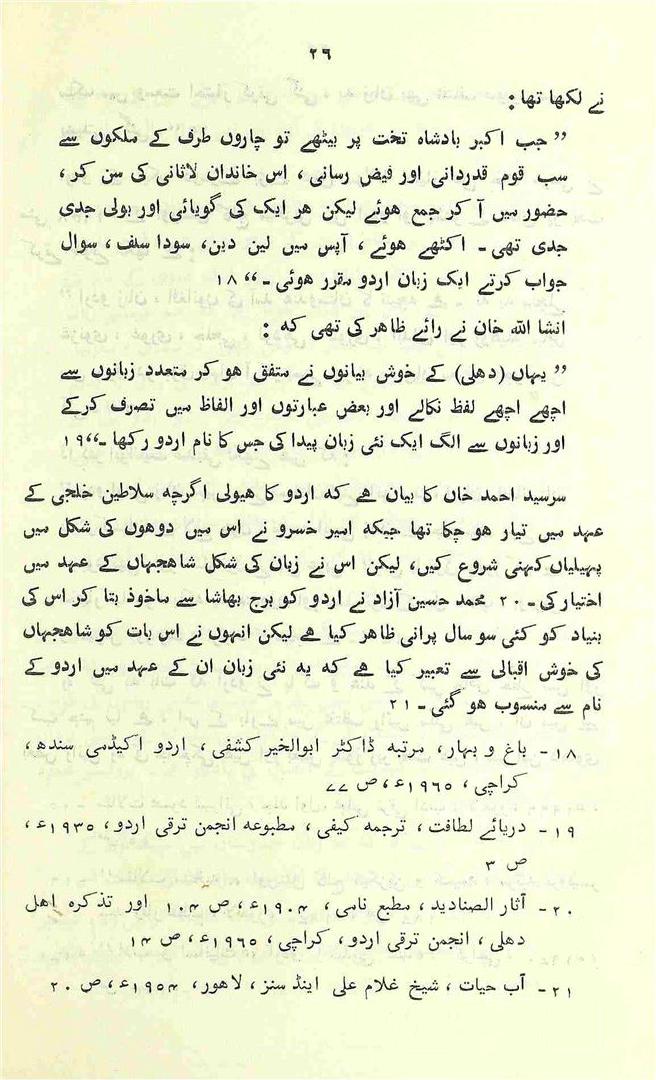 ۲٦
نے لکھا تھا :
”جب اکبر بادشاہ تخت پر بیٹھے تو چاروں طرف کے ملکوں سے
سب قوم قدردانی اور فیض رسانی ، اس خاندان لاثانی کی سن کر ،
حضور میں آ کر جمع ہوئے لیکن ہر ایک کی گویائی اور بولی جدی
جدی تھی ۔ اکٹھے ہوئے ، آپس میں لین دین، سودا سلف ، سوال
جواب کرتے ایک زبان اردو مقرر ہوئی ۔“ ۱۸
انشا اللہ خان نے رائے ظاہر کی تھی کہ :
”یہاں (دہلی) کے خوش بیانوں نے متفق ہو کر متعدد زبانوں سے
اچھے اچھے لفظ نکالے اور بعض عبارتوں اور الفاظ میں تصرف کرکے
اور زبانوں سے الگ ایک نئی زبان پیدا کی جس کا نام اردو رکھا ۔“۱۹
سرسید احمد خاں کا بیان ہے کہ اردو کا ہیولی اگرچہ سلاطین خلجی کے
عہد میں تیار ہو چکا تھا جبکہ امیر خسرو نے اس میں دوہوں کی شکل میں
پہیلیاں کہنی شروع کیں، لیکن اس نے زبان کی شکل شاهجہاں کے عہد میں
اختیار کی ۔ ۲۰ محمد حسین آزاد نے اردو کو برج بھاشا سے ماخوذ بتا کر اس کی
بنیاد کو کئی سو سال پرانی ظاہر کیا ہے لیکن انہوں نے اس بات کو شاهجہاں
کی خوش اقبالی سے تعبیر کیا ہے کہ یہ نئی زبان ان کے عہد میں اردو کے
نام سے منسوب ہو گئی ۔ ۲۱
۱۸- باغ و بہار، مرتبہ ڈاکٹر ابوالخیر کشفی ، اردو اکیڈمی سندھ ،
کراچی ، ۱۹٦۵ء ، ص ۷۷
۱۹- دریائے لطافت ، ترجمہ کیفی ، مطبوعہ انجمن ترقی اردو ، ۱۹۳۵ء ،
ص ۳
۲۰- آثار الصنادید ، مطبع نامی ، ۱۹۰۴ء ، ص ۱۰۴ اور تذکرہ اهل
دهلی ، انجمن ترقی اردو ، کراچی ، ۱۹٦۵ء ، ص ۱۴
۲۱- آب حیات ، شیخ غلام علی اینڈ سنز ، لاہور ، ۱۹۵۴ء ، ص ۲۰